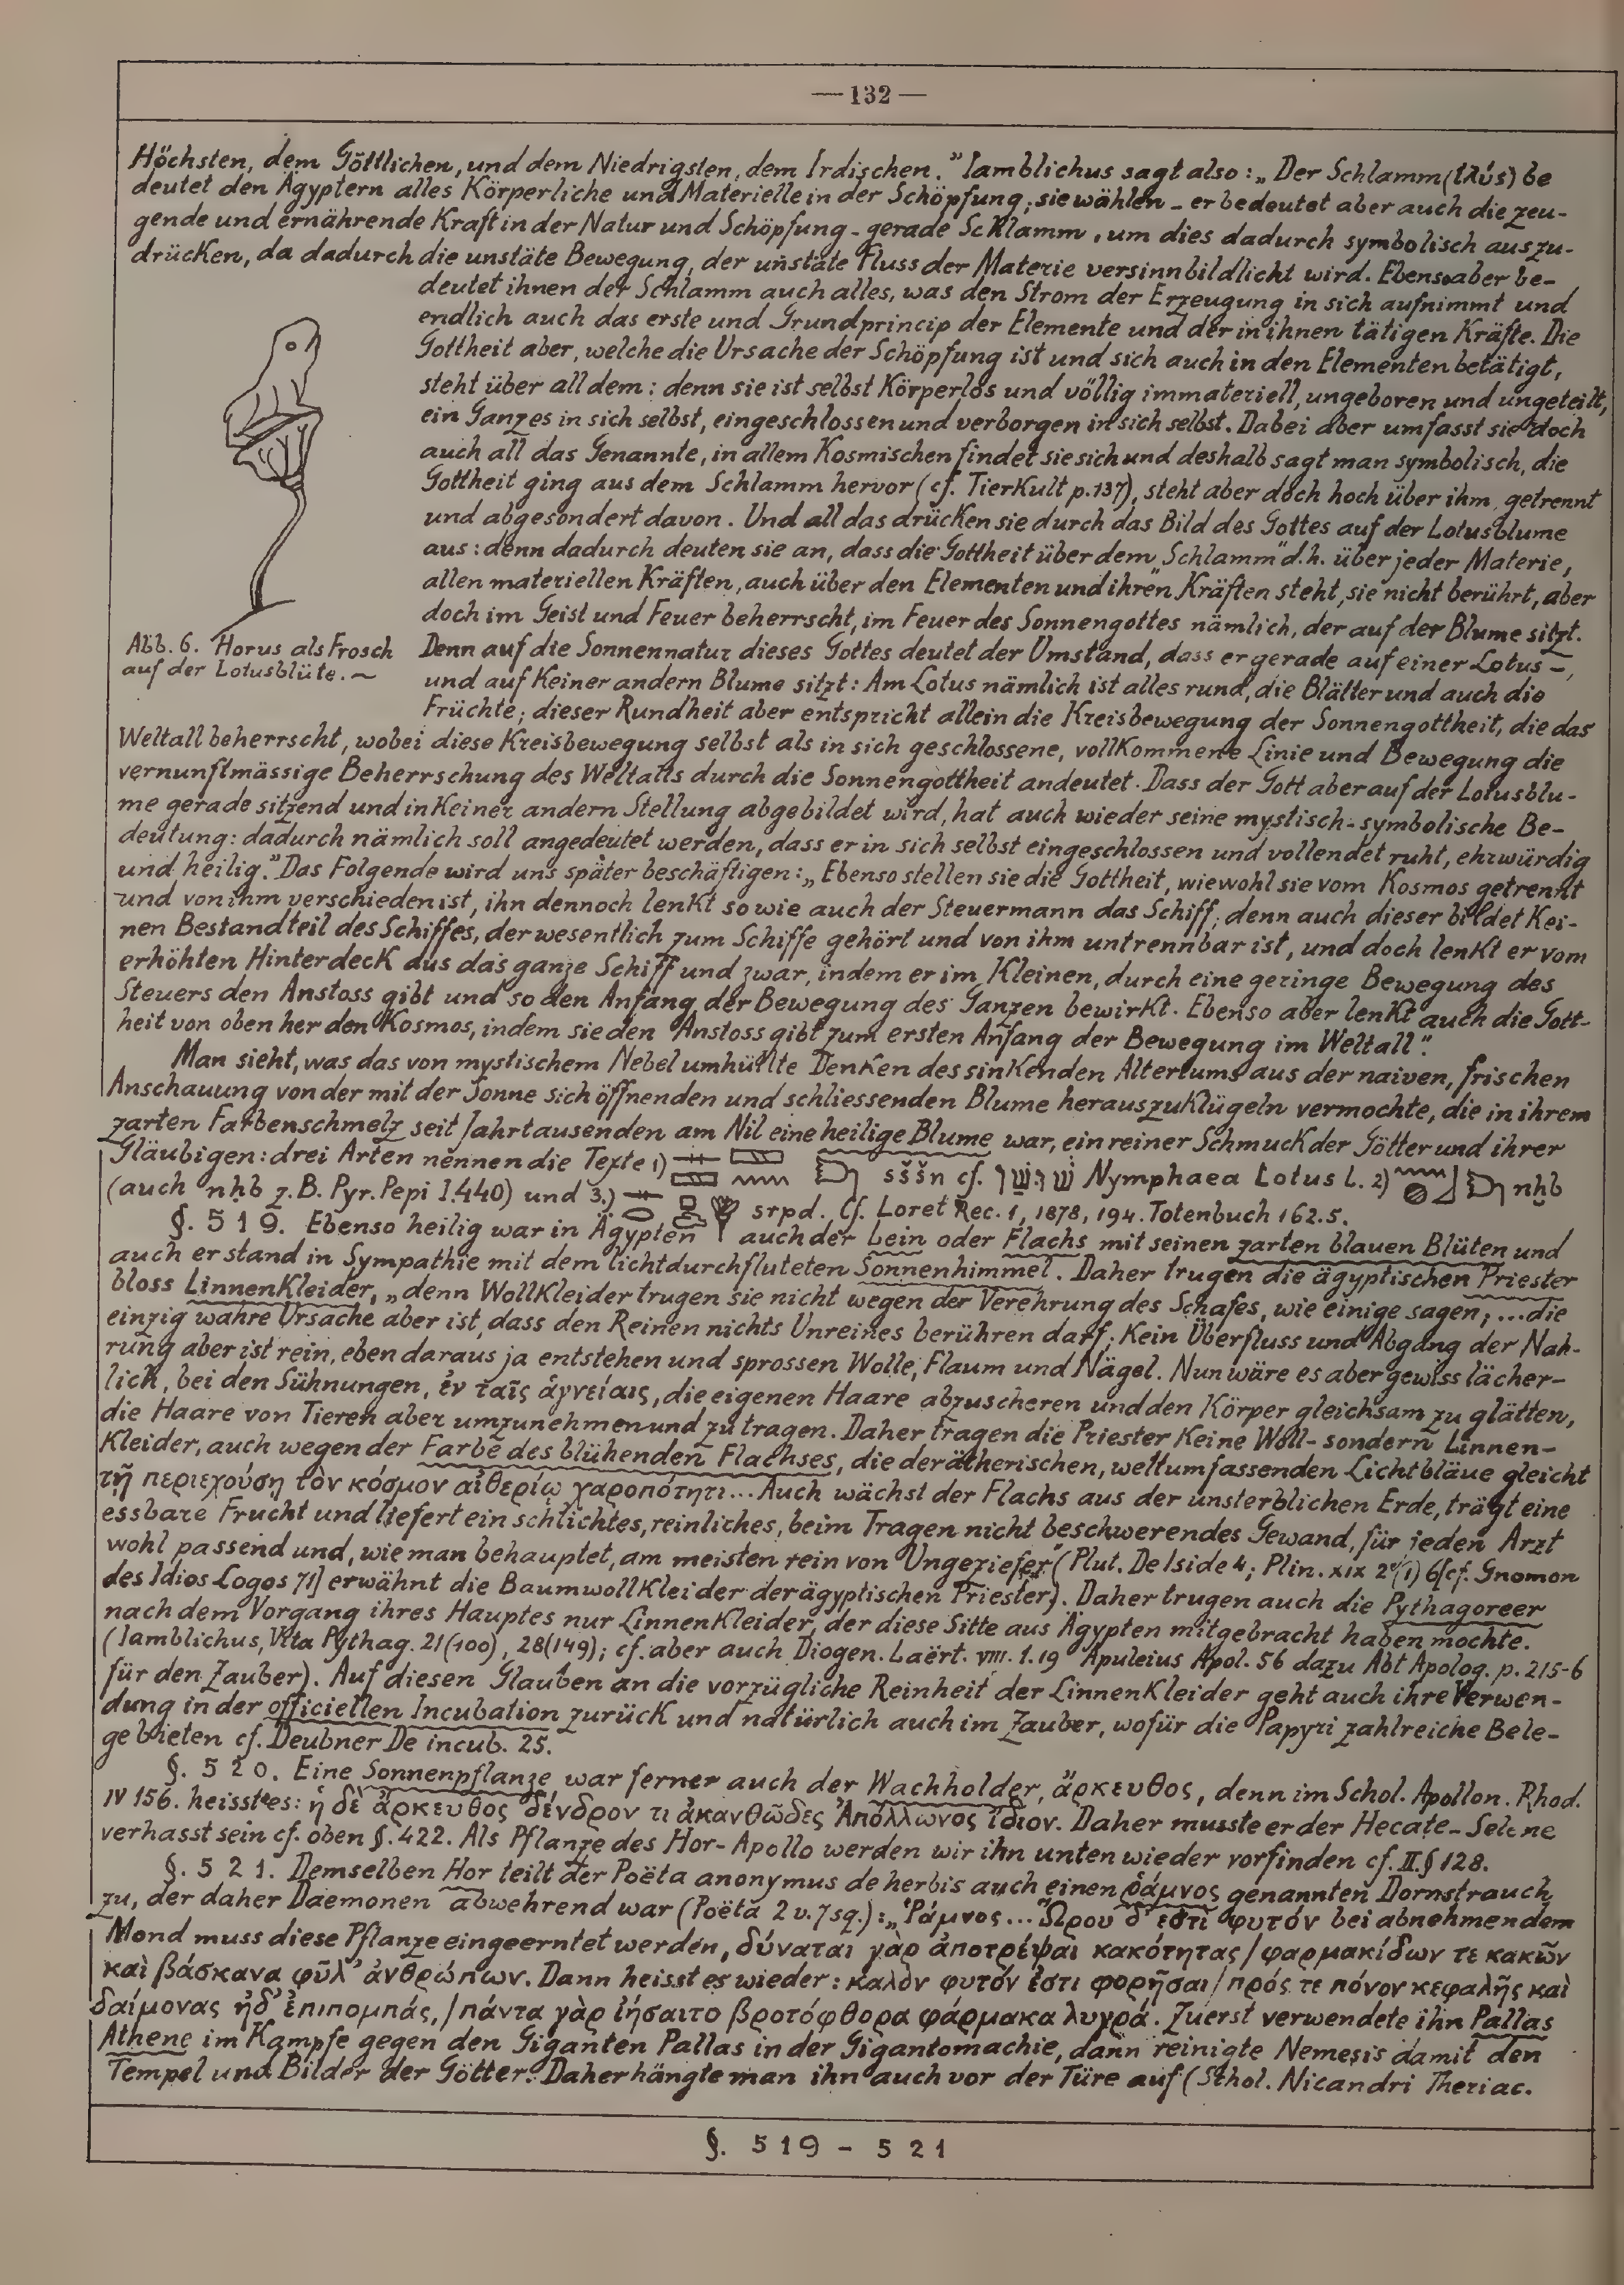 — 132 —
Höchsten, dem Göttlichen, und dem Niedrigsten, dem Irdischen." Iamblichus sagt also: „Der Schlamm (ἰλύς) be
deutet den Ägyptern alles Körperliche und Materielle in der Schöpfung; sie wählen – er bedeutet aber auch die zeu-
gende und ernährende Kraft in der Natur und Schöpfung – gerade Schlamm, um dies dadurch symbolisch auszu-
drücken, da dadurch die unstäte Bewegung, der unstäte Fluss der Materie versinnbildlicht wird. Ebenso aber be-
deutet ihnen der Schlamm auch alles, was den Strom der Erzeugung in sich aufnimmt und
endlich auch das erste und Grundprincip der Elemente und der in ihnen tätigen Kräfte. Die
Gottheit aber, welche die Ursache der Schöpfung ist und sich auch in den Elementen betätigt,
steht über all dem: denn sie ist selbst körperlos und völlig immateriell, ungeboren und ungeteilt,
ein Ganzes in sich selbst, eingeschlossen und verborgen in sich selbst. Dabei aber umfasst sie doch
auch all das Genannte, in allem Kosmischen findet sie sich und deshalb sagt man symbolisch, die
Gottheit ging aus dem Schlamm hervor (cf. Tierkult p. 137), steht aber doch hoch über ihm, getrennt
und abgesondert davon. Und all das drücken sie durch das Bild des Gottes auf der Lotusblume
aus: denn dadurch deuten sie an, dass die Gottheit über dem „Schlamm" d.h. über jeder Materie,
allen materiellen Kräften, auch über den Elementen und ihren Kräften steht, sie nicht berührt, aber
doch im Geist und Feuer beherrscht, im Feuer des Sonnengottes nämlich, der auf der Blume sitzt.
Abb. 6. Horus als Frosch
auf der Lotusblüte. ~
Denn auf die Sonnennatur dieses Gottes deutet der Umstand, dass er gerade auf einer Lotus –,
und auf keiner andern Blume sitzt: Am Lotus nämlich ist alles rund, die Blätter und auch die
Früchte; dieser Rundheit aber entspricht allein die Kreisbewegung der Sonnengottheit, die das
Weltall beherrscht, wobei diese Kreisbewegung selbst als in sich geschlossene, vollkommene Linie und Bewegung die
vernunftmässige Beherrschung des Weltalls durch die Sonnengottheit andeutet. Dass der Gott aber auf der Lotusblu-
me gerade sitzend und in keiner andern Stellung abgebildet wird, hat auch wieder seine mystisch-symbolische Be-
deutung: dadurch nämlich soll angedeutet werden, dass er in sich selbst eingeschlossen und vollendet ruht, ehrwürdig
und heilig." Das Folgende wird uns später beschäftigen: „Ebenso stellen sie die Gottheit, wiewohl sie vom Kosmos getrennt
und von ihm verschieden ist, ihn dennoch lenkt so wie auch der Steuermann das Schiff; denn auch dieser bildet kei-
nen Bestandteil des Schiffes, der wesentlich zum Schiffe gehört und von ihm untrennbar ist, und doch lenkt er vom
erhöhten Hinterdeck aus das ganze Schiff und zwar, indem er im Kleinen, durch eine geringe Bewegung des
Steuers den Anstoss gibt und so den Anfang der Bewegung des Ganzen bewirkt. Ebenso aber lenkt auch die Gott-
heit von oben her den Kosmos, indem sie den Anstoss gibt zum ersten Anfang der Bewegung im Weltall".
Man sieht, was das von mystischem Nebel umhüllte Denken des sinkenden Altertums aus der naiven, frischen
Anschauung von der mit der Sonne sich öffnenden und schliessenden Blume herauszuklügeln vermochte, die in ihrem
zarten Farbenschmelz seit Jahrtausenden am Nil eine heilige Blume war, ein reiner Schmuck der Götter und ihrer
Gläubigen: drei Arten nennen die Texte 1) sššn cf. Nymphaea Lotus L. 2) nḥb
(auch nḥb z.B. Pyr. Pepi I. 440) und 3.) srpd. Cf. Loret Rec. 1, 1878, 194. Totenbuch 162.5.
§. 519. Ebenso heilig war in Ägypten auch der Lein oder Flachs mit seinen zarten blauen Blüten und
auch er stand in Sympathie mit dem lichtdurchfluteten Sonnenhimmel. Daher trugen die ägyptischen Priester
bloss Linnenkleider, „denn Wollkleider trugen sie nicht wegen der Verehrung des Schafes, wie einige sagen; ... die
einzig wahre Ursache aber ist, dass den Reinen nichts Unreines berühren darf; kein Überfluss und Abgang der Nah-
rung aber ist rein, eben daraus ja entstehen und sprossen Wolle, Flaum und Nägel. Nun wäre es aber gewiss lächer-
lich, bei den Sühnungen, ἐν ταῖς ἁγνείαις, die eigenen Haare abzuscheren und den Körper gleichsam zu glätten,
die Haare von Tieren aber umzunehmen und zu tragen. Daher tragen die Priester keine Woll- sondern Linnen-
kleider, auch wegen der Farbe des blühenden Flachses, die der ätherischen, weltumfassenden Lichtbläue gleicht
τῇ περιεχούσῃ τὸν κόσμον αἰθερίῳ χαροπότητι... Auch wächst der Flachs aus der unsterblichen Erde, trägt eine
essbare Frucht und liefert ein schlichtes, reinliches, beim Tragen nicht beschwerendes Gewand, für jeden Arzt
wohl passend und, wie man behauptet, am meisten rein von Ungeziefer" (Plut. De Iside 4; Plin. XIX 2 (1) 6 [cf. Gnomon
des Idios Logos 71] erwähnt die Baumwollkleider der ägyptischen Priester). Daher trugen auch die Pythagoreer
nach dem Vorgang ihres Hauptes nur Linnenkleider, der diese Sitte aus Ägypten mitgebracht haben mochte.
(Iamblichus, Vita Pythag. 21 (100), 28 (149); cf. aber auch Diogen. Laërt. VIII. 1. 19 Apuleius Apol. 56 dazu Abt Apolog. p. 215-6
für den Zauber). Auf diesen Glauben an die vorzügliche Reinheit der Linnenkleider geht auch ihre Verwen-
dung in der officiellen Incubation zurück und natürlich auch im Zauber, wofür die Papyri zahlreiche Bele-
ge bieten cf. Deubner De incub. 25.
§. 520. Eine Sonnenpflanze war ferner auch der Wachholder, ἄρκευθος, denn im Schol. Apollon. Rhod.
IV 156. heisst es: ἡ δὲ ἄρκευθος δένδρον τι ἀκανθῶδες Ἀπόλλωνος ἴδιον. Daher musste er der Hecate-Selene
verhasst sein cf. oben §. 422. Als Pflanze des Hor-Apollo werden wir ihn unten wieder vorfinden cf. II. § 128.
§. 521. Demselben Hor teilt der Poëta anonymus de herbis auch einen ῥάμνος genannten Dornstrauch
zu, der daher Daemonen abwehrend war (Poëta 2 v. 7 sq.): „Ῥάμνος... Ὥρου δ' ἐστὶ φυτόν bei abnehmendem
Mond muss diese Pflanze eingeerntet werden, δύναται γὰρ ἀποτρέψαι κακότητας / φαρμακίδων τε κακῶν
καὶ βάσκανα φῦλ' ἀνθρώπων. Dann heisst es wieder: καλὸν φυτόν ἐστι φορῆσαι / πρός τε πόνον κεφαλῆς καὶ
δαίμονας ἠδ' ἐπιπομπάς, / πάντα γὰρ ἰήσαιτο βροτόφθορα φάρμακα λυγρά. Zuerst verwendete ihn Pallas
Athene im Kampfe gegen den Giganten Pallas in der Gigantomachie, dann reinigte Nemesis damit den
Tempel und Bilder der Götter. Daher hängte man ihn auch vor der Türe auf (Schol. Nicandri Theriac.
§. 519 - 521